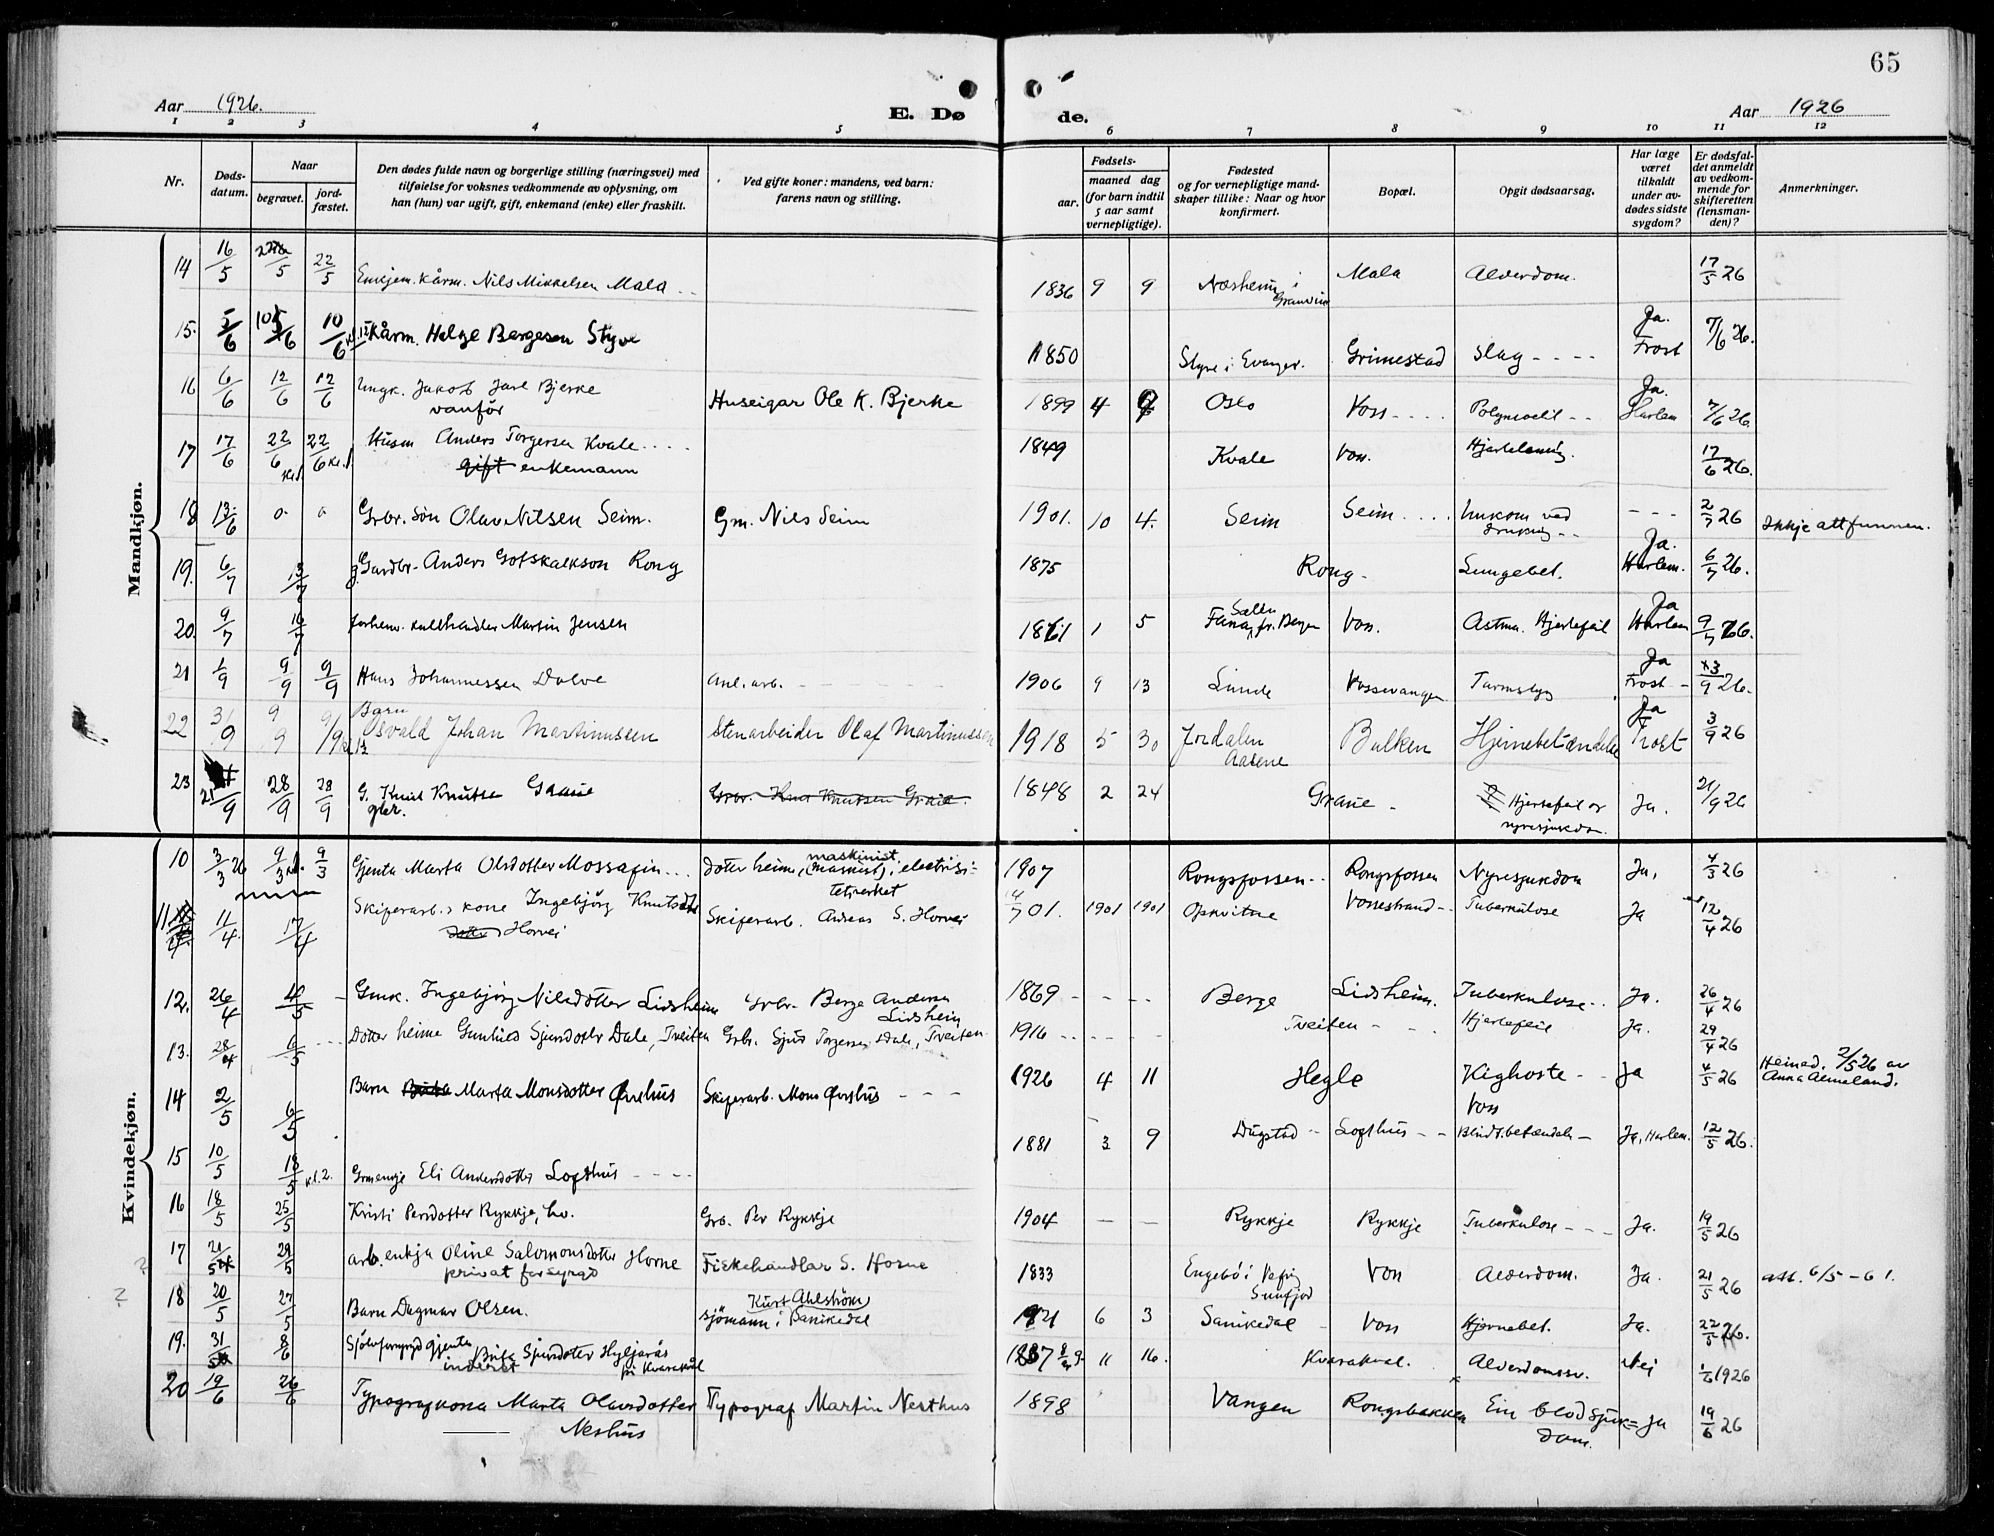 65
Aar 1926.
E. Dø
de.
Aar 1926
1 2 3 4 5 6 7 8 9 10 11 12
Nr.
Døds-
datum.
Naar
begravet.
jord-
fæstet.
Den dødes fulde navn og borgerlige stilling (næringsvei) med
tilføielse for voksnes vedkommende av oplysning, om
han (hun) var ugift, gift, enkemand (enke) eller fraskilt.
Ved gifte koner: mandens, ved barn:
farens navn og stilling.
Fødsels-
aar.
maaned dag
(for barn indtil
5 aar samt
vernepligtige).
Fødested
og for vernepligtige mand-
skaper tillike: Naar og hvor
konfirmert.
Bopæl.
Opgit dødsaarsag.
Har læge
været
tilkaldt
under av-
dødes sidste
sygdom?
Er dødsfal-
det anmeldt
av vedkom-
mende for
skifteretten
(lensman-
den)?
Anmerkninger.
Mandkjøn.
14 16/5 22/5 Kårm. Nils Mikkelsen Mala 1836 9 9 Næsheim i Mala Alderdom. 17/5 26
Granvin
15. 5/6 10/6 Kårm. Helge Bergesen Styve 1850 Styve i Evanger. Grimestad Slag Ja. Frost 7/6 26.
16 6/6 12/6 12/6 Ungk. Jakob Jarl Bjerke Huseigar Ole K. Bjerke 1899 4 Oslo Voss Ja. Harlem 7/6 26.
vanför
17 17/6 22/6 22/6 kl. 1 Husm Anders Torgersen Kvale 1849 Kvale Voss. 17/6 26.
gift enkemann
18 13/6 o. o Grbr. Sön Olav Nilsen Seim. Gm. Nils Seim 1901. 10 4. Seim Seim Umkom ved - - - 2/7 26 Ikkje attfunnen.
19. 6/7 13/7 Gardbr. Anders Gotskalkson Rong 1875 Rong Lungebet. Ja. Harlem. 6/7 26.
20. 9/7 16/7 forhenv. Martin Jensen 1861 1 5 Fana, fr. Bergen Voss. Astma. Hjertefeil Ja Harlem 9/7 26.
21 1/9 9/9 9/9 Hans Johannessen Dolve anl. arb. 1906 9 13 Lunde Vossevangen Ja Frost 3/9 26.
22 3/9 9/9 9/9 Barn Osvald Johan Martinussen Stenarbeider Olaf Martinussen 1918 5 30 Jordalen Bulken Hjernebetændelse Ja Frost 3/9 26
23 21/9 28/9 28/9 G. Knut Knutsen Graue Grbr. Knut Knutsen Graue. 1848 2 24 Graue Hjertefeil og Ja. 21/9 26
nyresjukdom.
Kvindekjøn.
10 3/3 26 9/3 9/3 Gjenta Marta Olsdotter Mossafin dotter heime, (maskinist), electrisi- 1907 Rongsfossen Rongsfossen Nyresjukdom Ja, 4/3 26
maskinist
tetsverket
11 11/4 17/4 Skiferarb.s kone Ingebjörg Knutsdtr Skiferarb. Andreas S. Horvei 4/7 01. 1901 1901 Opkvitne Vossestrand Tuberkulose Ja 12/4 26
Horvei
12. 26/4 4/5 Gmk. Ingebjörg Nilsdotter Lidsheim Grbr. Berge Andersen 1869 Berge Lidsheim. Tuberkulose Ja. 26/4 26
Lidsheim
13. 28/4 6/5 Dotter heime Gunhild Sjursdotter Dale, Tveiten Grb. Sjur Torgersen Dale, Tveiten 1916 Tveiten Hjertefeil Ja. 29/4 26
14 2/5 6/5 Barn Brita Marta Monsdotter Övsthus Skiferarb. Mons Övsthus 1926 4 11 Hegle Kighoste Ja 4/5 26 Heimed. 2/5 26 av
Anna Almeland.
Voss
15 10/5 18/5 kl. 2. Grmenkje Eli Andersdotter Lofthus 1881 3 9 Dugstad Lofthus Blindt.betændels Ja, Harlem. 12/5 26.
16 18/5 25/5 Kristi Persdotter Rykkje, hv. Grb. Per Rykkje 1904 Rykkje Rykkje Tuberkulose Ja. 19/5 26
17 21/5 29/5 arb.enkja Oline Salomonsdotter Horne Fiskehandlar S. Horne 1833 Engebö i Voss Alderdom. Ja. 21/5 26 att. 6/5 - 61.
privat forsyrgd Sunfjord
18 20/5 27/5 Barn Dagmar Olsen. Kurt Ahlström 1921 6 3 Sanikedal Voss Hjernebet. Ja. 22/5 26.
sjömann i Sanikedal
19. 31/5 8/6 Sjölvforsyrgd gjenta Brita Sjursdotter Hyljarås 11 16. Kvarakvål. Alderdomssv. Nei 1/6 1926
inderst på Kvarakvål
20 19/6 26/6 Typografkona Marta Olavsdotter Typograf Martin Nesthus 1898 Vangen Rongsbakken Ein blodsjuk= Ja 19/6 26
Neshus dom.